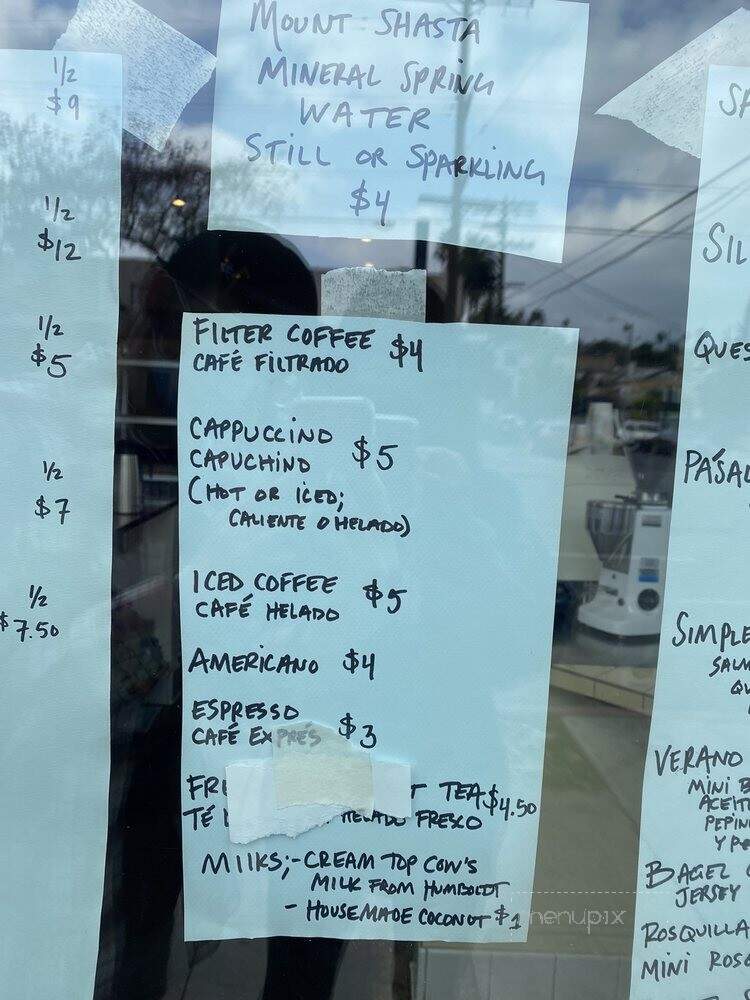 1/2
$9
1/2
$12
1/2
$5
1/2
$7
1/2
$7.50
MOUNT SHASTA
MINERAL SPRING
WATER
STILL OR SPARKLING
$4
FILTER COFFEE $4
CAFÉ FILTRADO
CAPPUCCINO $5
CAPUCHINO
(HOT OR ICED;
CALIENTE O HELADO)
ICED COFFEE $5
CAFÉ HELADO
AMERICANO $4
ESPRESSO $3
CAFÉ EXPRÉS
TEA $4.50
TÉ HELADO FRESCO
MILKS;-CREAM TOP COW'S
MILK FROM HUMBOLDT
- HOUSEMADE COCONUT $1
menupix
SIMPLE
VERANO
MINI B
PEPIN
Y P
BAGEL
JERSEY
ROSQUILLA
MINI ROSQ